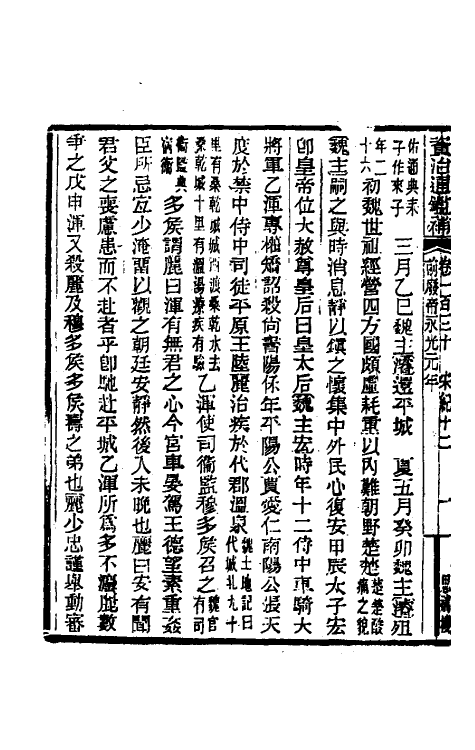 資治通鑑補 卷一百三十 宋紀十二 一
前廢帝永光元年
佑通典未子作來子 三月乙巳魏主濬還平城 夏五月癸卯魏主濬殂
年二十六 初魏世祖經營四方國頗虛耗重以內難朝野楚楚 楚楚酸痛之貌
魏主嗣之與時消息靜以鎮之懷集中外民心復安甲辰太子宏
卽皇帝位大赦尊皇后曰皇太后魏主宏時年十二侍中車騎大
將軍乙渾專權矯詔殺尚書陽保年平陽公賈愛仁南陽公張天
度於禁中侍中司徒平原王陸麗治疾於代郡溫泉 魏土地記曰代城北九十
里有桑乾城城西渡桑乾水去桑乾城十里有溫湯療疾有驗 乙渾使司衞監穆多侯召之 魏官有司
衞監典宿衞 多侯謂麗曰渾有無君之心今宮車晏駕王德望素重姦
臣所忌宜少淹留以觀之朝廷安靜然後入未晚也麗曰安有聞
君父之喪慮患而不赴者乎卽馳赴平城乙渾所爲多不灋麗數
爭之戊申渾又殺麗及穆多侯多侯壽之弟也麗少忠謹舉動審